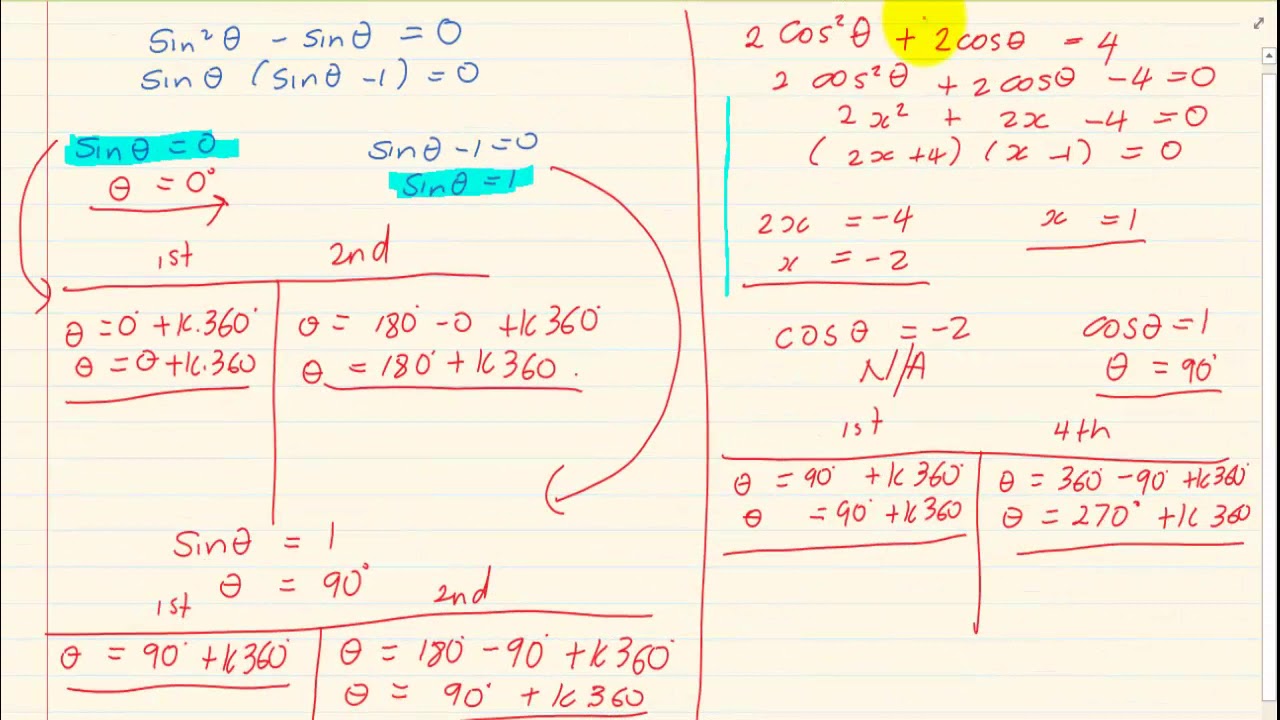 sin²θ - sinθ = 0
sinθ (sinθ -1) = 0
sinθ = 0
θ = 0°
sinθ -1 = 0
sinθ = 1
1st 2nd
θ = 0° + k.360°
θ = θ + k.360
θ = 180° - 0 + k360°
θ = 180° + k360.
sinθ = 1
θ = 90°
1st 2nd
θ = 90° + k360°
θ = 180° - 90° + k360°
θ = 90° + k360
2 cos²θ + 2cosθ = 4
2 cos²θ + 2cosθ -4 = 0
2x² + 2x -4 = 0
(2x+4) (x -1) = 0
2x = -4
x = -2
x = 1
cosθ = -2
N/A
cosθ = 1
θ = 90°
1st 4th
θ = 90° + k360°
θ = 90° + k360
θ = 360° - 90° + k360°
θ = 270° + k360